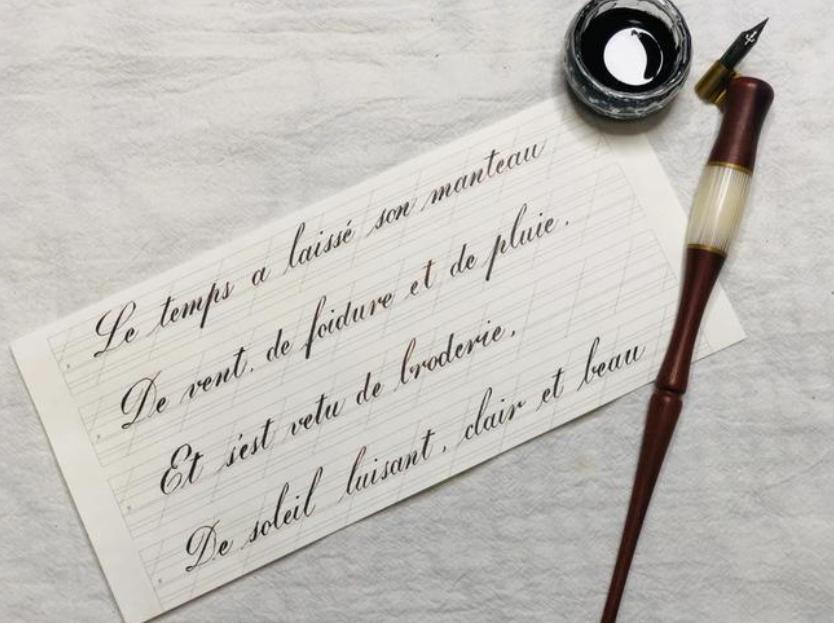 Le temps a laissé son manteau
De vent, de foidure et de pluie.
Et s'est vetu de broderie,
De soleil luisant, clair et beau